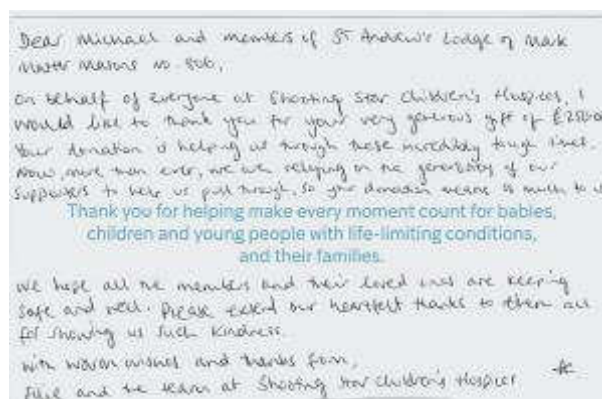 Dear Michael and members of St Andrew's Lodge of Mark
Master Masons no. 806,
On behalf of everyone at Shooting Star Children's Hospices, I
would like to thank you for your very generous gift of £2500
Your donation is helping us through these incredibly tough times.
Now, more than ever, we are relying on the generosity of our
supporters to help us pull through, so your donation means so much to us
Thank you for helping make every moment count for babies,
children and young people with life-limiting conditions,
and their families.
We hope all the members and their loved ones are keeping
safe and well. Please extend our heartfelt thanks to them all
for showing us such kindness.
With warm wishes and thanks from,
and the team at Shooting Star Children's Hospices